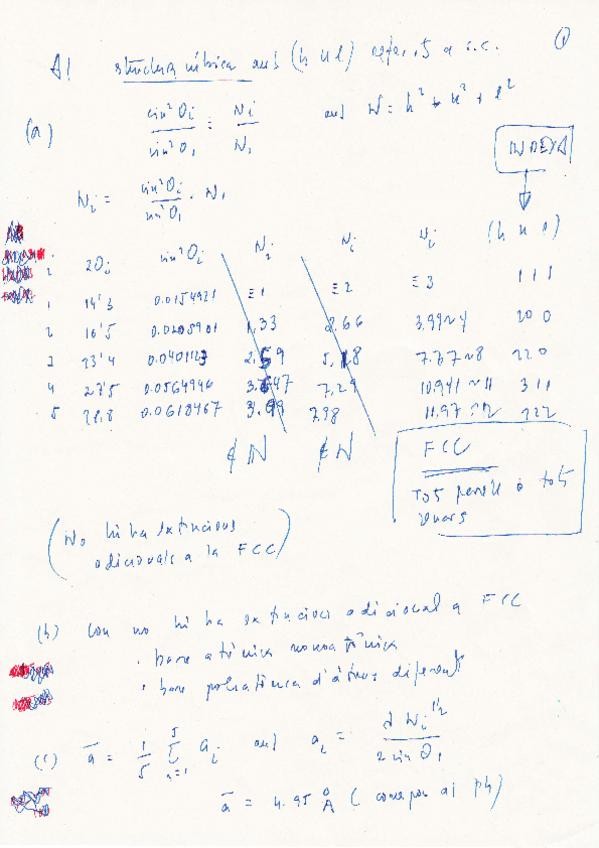 ①
A1 (h k l) referits a s.c.
(a) sin²θi / sin²θ1 = Ni / N1 amb N = h² + k² + l²
INDEXA
Ni = sin²θi / sin²θ1 · N1
i 2θi sin²θi Ni Ni Ni (h k l)
1 14'3 0.0154921 ≡ 1 ≡ 2 ≡ 3 1 1 1
2 16'5 1,33 2.66 3.99≈4 2 0 0
3 23'4 2,59 5,18 7.77≈8 2 2 0
4 27'5 0.0564946 7,29 10.941≈11 3 1 1
5 28,8 0.0618467 3.99 7.98 11.97≈12 2 2 2
∉ N ∉ N
FCC
Tots parells o tots
senars
(No hi ha extincions
adicionals a la FCC)
(b) Com no hi ha extincions adicional a FCC
· base atòmica monoatòmica
· base poliatòmica d'àtoms diferents
(c) a̅ = 1/5 Σ ai amb ai = λ Ni^1/2 / 2 sin θ1
a̅ = 4.95 Å (correspon al Pb)